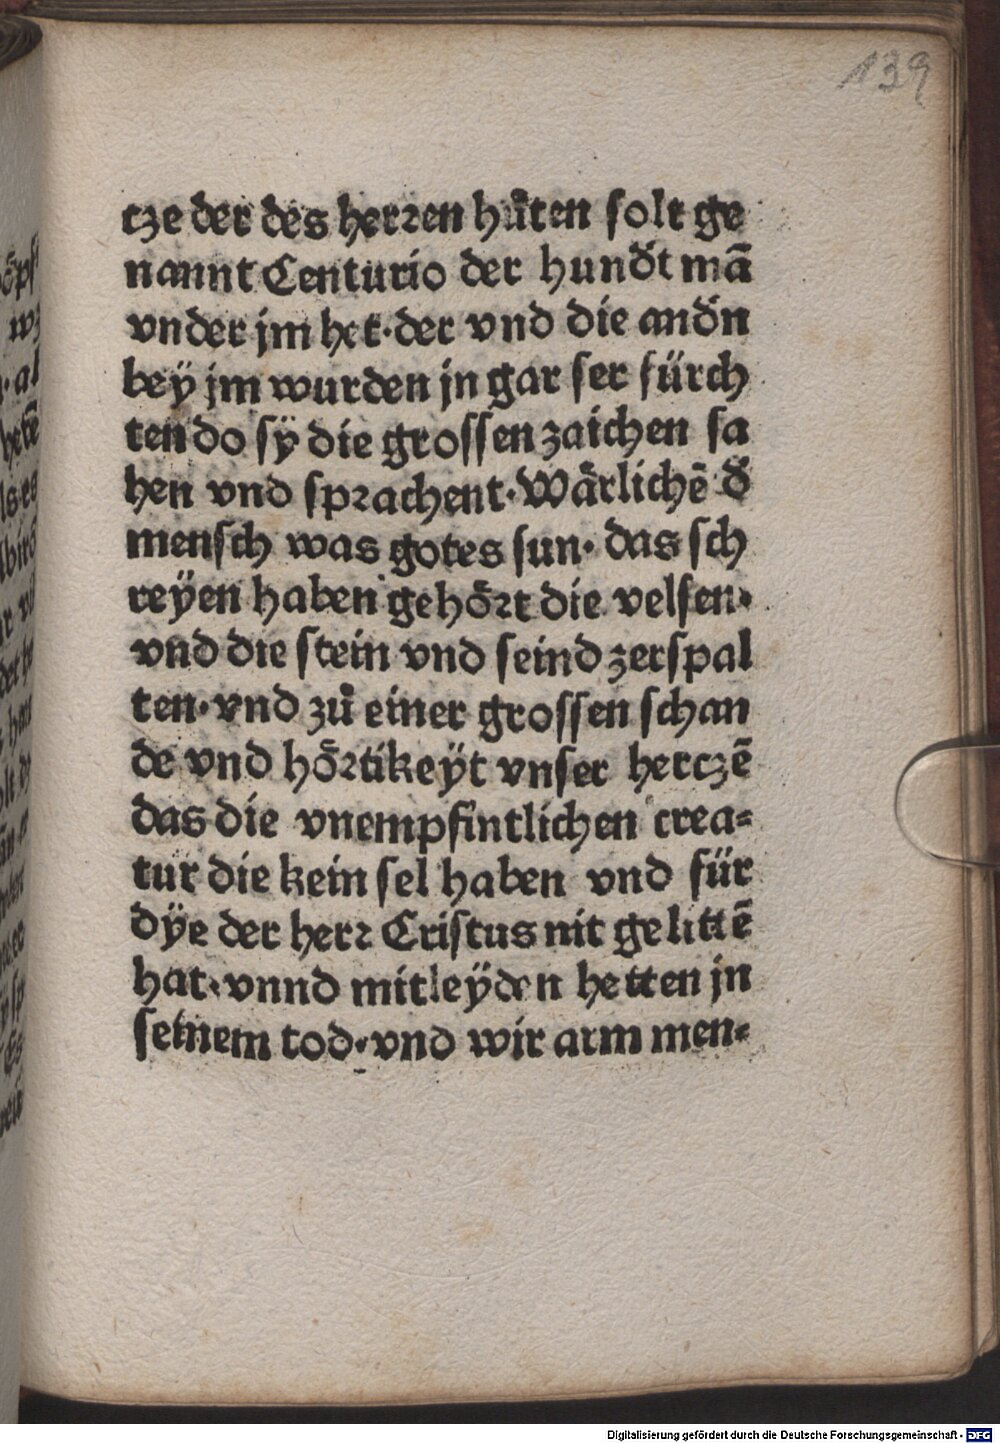 139
tze der des herꝛen huͤten solt ge
nannt Centurio der hundꝺ̈t mā
vnder jm het·der vnd die andn̄
bey̎ jm wurden jn gar ser fürch
ten do sÿ die grossen zaichen sa
hen vnd spꝛachent·Waͤrlichē d̄
mensch was gotes sun· das sch
reÿen haben gehoͤꝛt die velsen·
vnd die stein vnd seind zerspal
ten·vnd zů einer grossen schan
de vnd hoͤꝛtikeÿt vnser hertzē
das die vnempfintlichen crea-
tur die kein sel haben vnd für
dÿe der herꝛ Cristus nit gelittē
hat·vnnd mitleÿden hetten jn
seinem tod·vnd wir arm men-
Digitalisierung gefördert durch die Deutsche Forschungsgemeinschaft - DFG